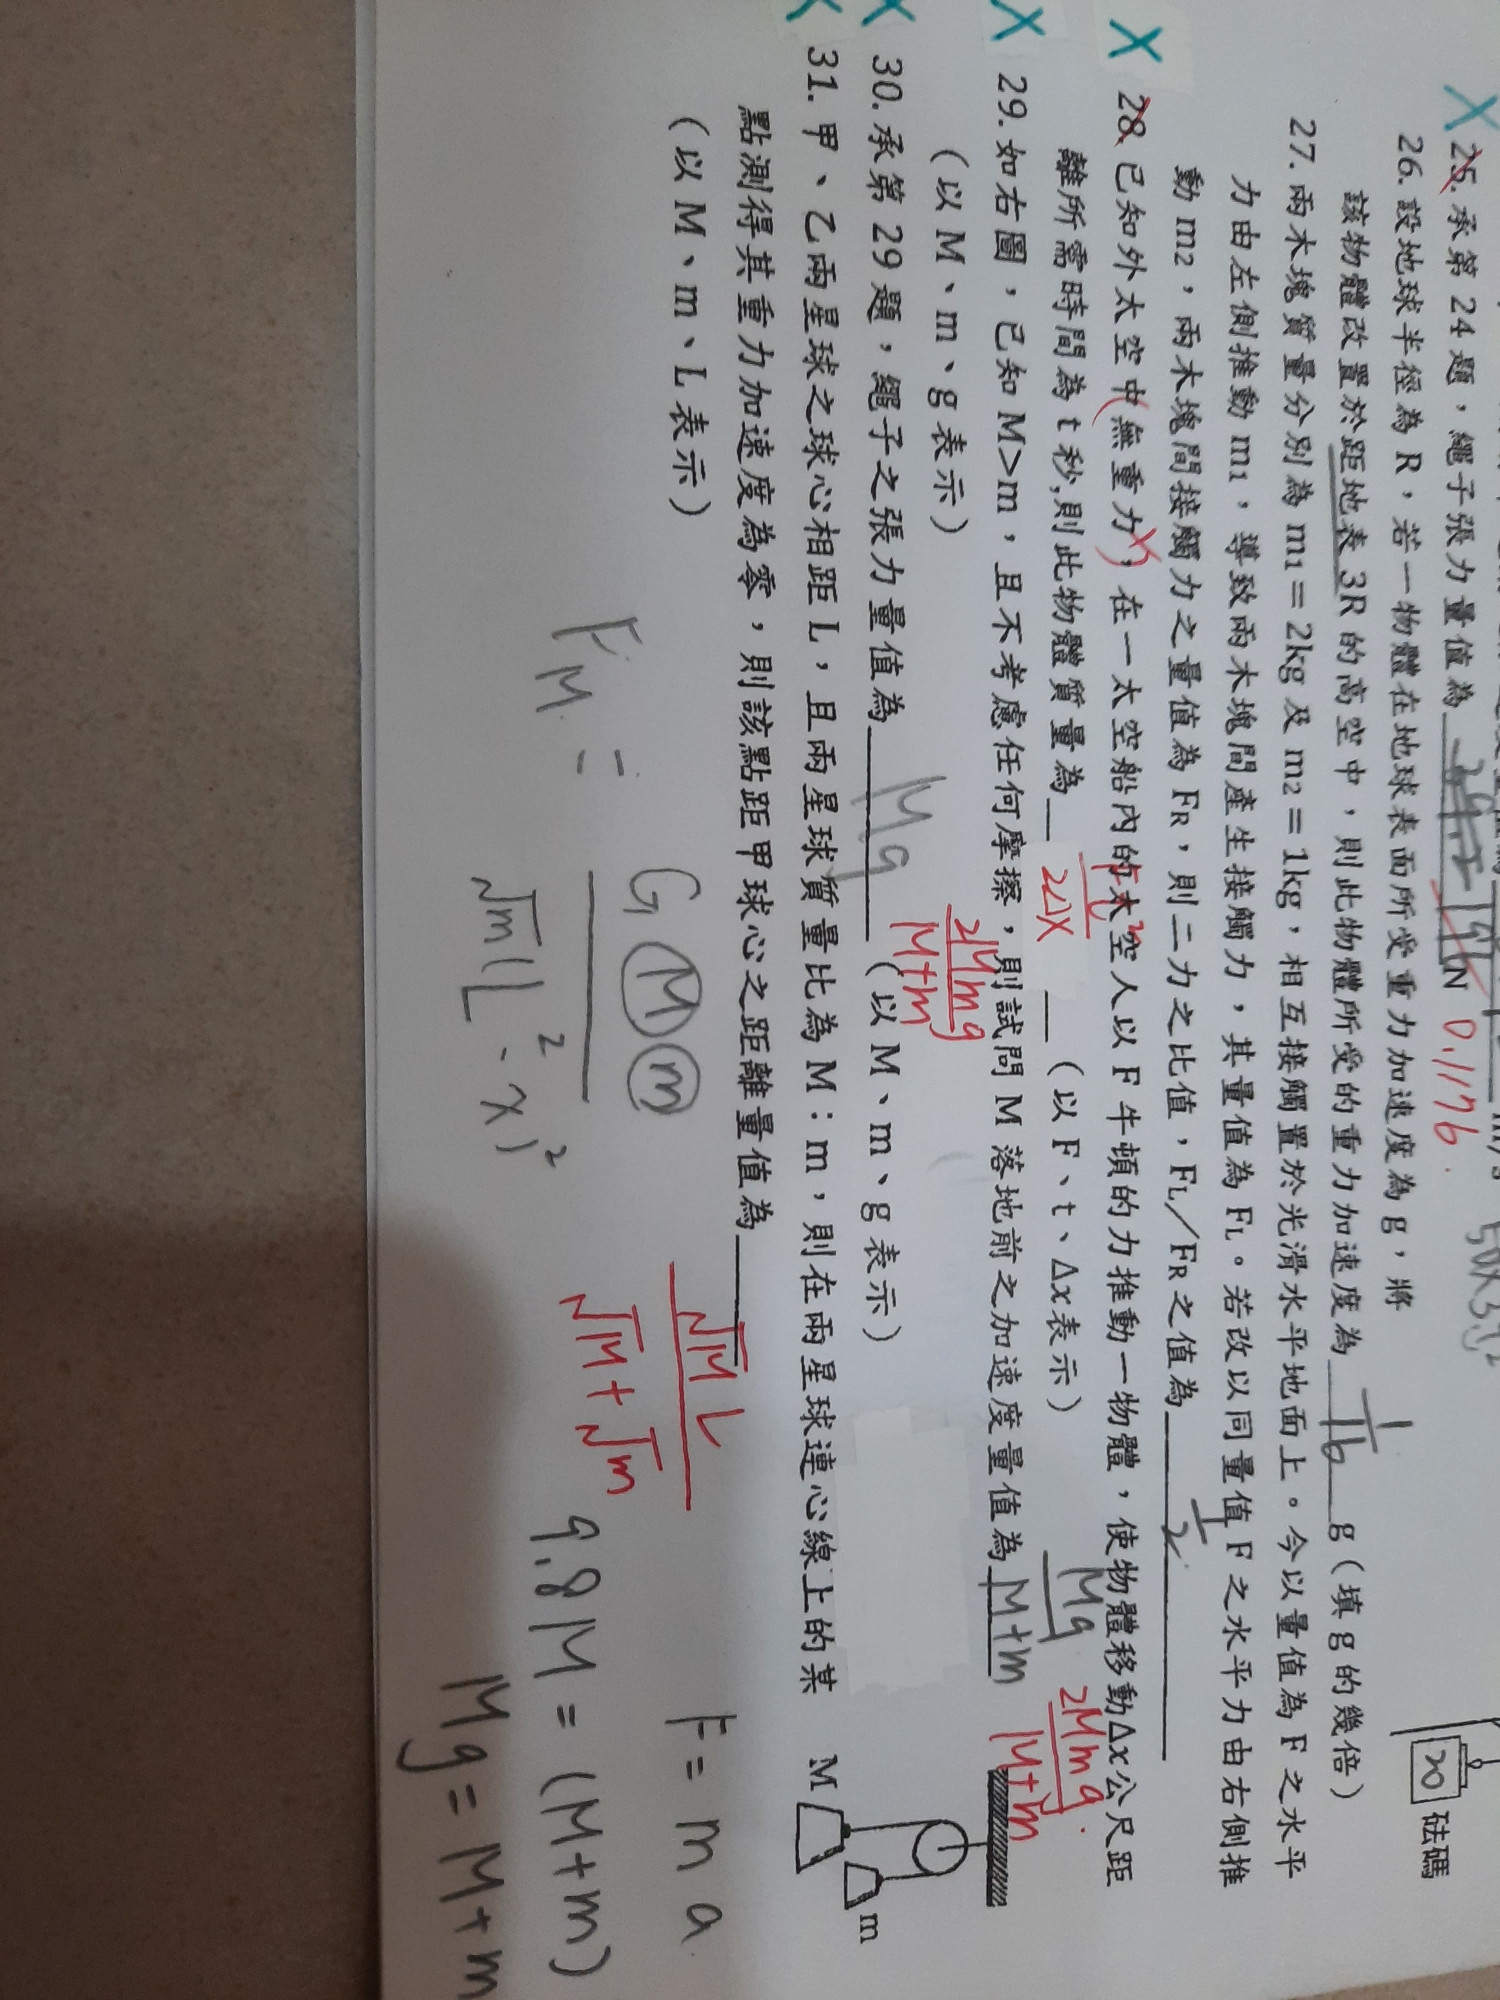 X 25. 承第 24 題，繩子張力量值為 N 0.1176
26. 設地球半徑為 R，若一物體在地球表面所受重力加速度為 g，將
該物體改置於距地表 3R 的高空中，則此物體所受的重力加速度為 1/16 g（填 g 的幾倍）
20 砝碼
27. 兩木塊質量分別為 m1＝2kg 及 m2＝1kg，相互接觸置於光滑水平地面上。今以量值為 F 之水平
力由左側推動 m1，導致兩木塊間產生接觸力，其量值為 FL。若改以同量值 F 之水平力由右側推
動 m2，兩木塊間接觸力之量值為 FR，則二力之比值，FL/FR 之值為 1/2
X 28. 已知外太空中(無重力)，在一太空船內的太空人以 F 牛頓的力推動一物體，使物體移動Δx公尺距
離所需時間為 t 秒,則此物體質量為 Ft²/2Δx （以 F、t、Δx表示）
X 29. 如右圖，已知 M>m，且不考慮任何摩擦，則試問 M 落地前之加速度量值為 Mg/M+m 2Mmg/M+m
（以 M、m、g 表示）
X 30. 承第 29 題，繩子之張力量值為 Mg 2Mmg/M+m （以 M、m、g 表示）
X 31. 甲、乙兩星球之球心相距 L，且兩星球質量比為 M：m，則在兩星球連心線上的某
點測得其重力加速度為零，則該點距甲球心之距離量值為 √M L/√M+√m
（以 M、m、L 表示）
M
m
F=ma
FM = GMm
9.8M=(M+m)
Mg=M+m